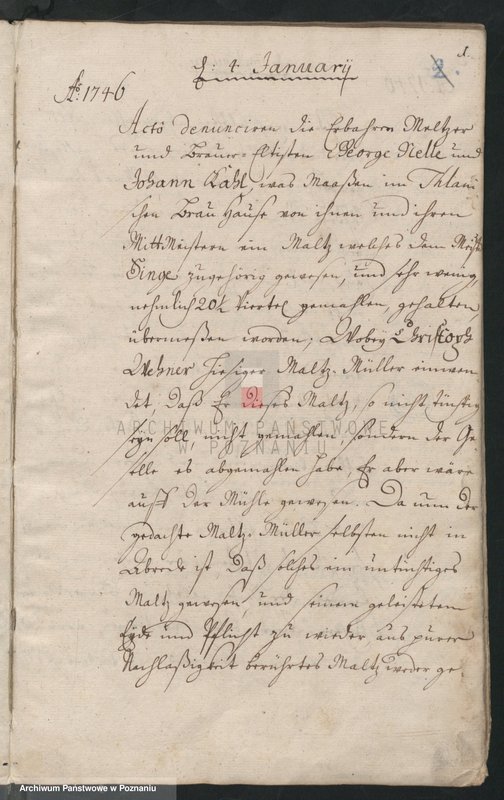 1.
2.
d: 4. Januarij
Aõ: 1746
Acto denunciren die Erbahren Meltzer
und Breuer-Eltisten George Nelle und
Johann Kahl, was Maaßen im Thlami
schen Brau Hause von ihnen und ihren
Mitt Meistern ein Maltz welches dem Meist
Singe zugehörig gewesen, und sehr wenig
nehmlich 20½ Viertel gemahlen, gehalten
übermeßen worden; Wobey Christoph
Wehner hiesiger Maltz-Müller einwen
det, daß Er dieses Maltz, so nicht tüchtig
seyn soll, nicht gemahlen, sondern der Ge
selle es abgemahlen habe, Er aber wäre
auff der Mühle gewesen. Da nun der
gedachte Maltz-Müller selbsten nicht in
Abrede ist, daß solches ein untüchtiges
Maltz gewesen, und seinem geleisteten
Eyde und Pflicht zu wieder aus purer
Nachlaßigkeit berührtes Maltz weder ge-
ARCHIWUM PAŃSTWOWE
W POZNANIU
Archiwum Państwowe w Poznaniu